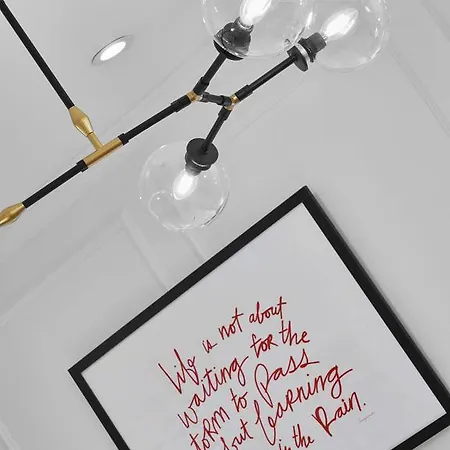 Life is not about
waiting for the
torm to pass
but learning
the Rain.